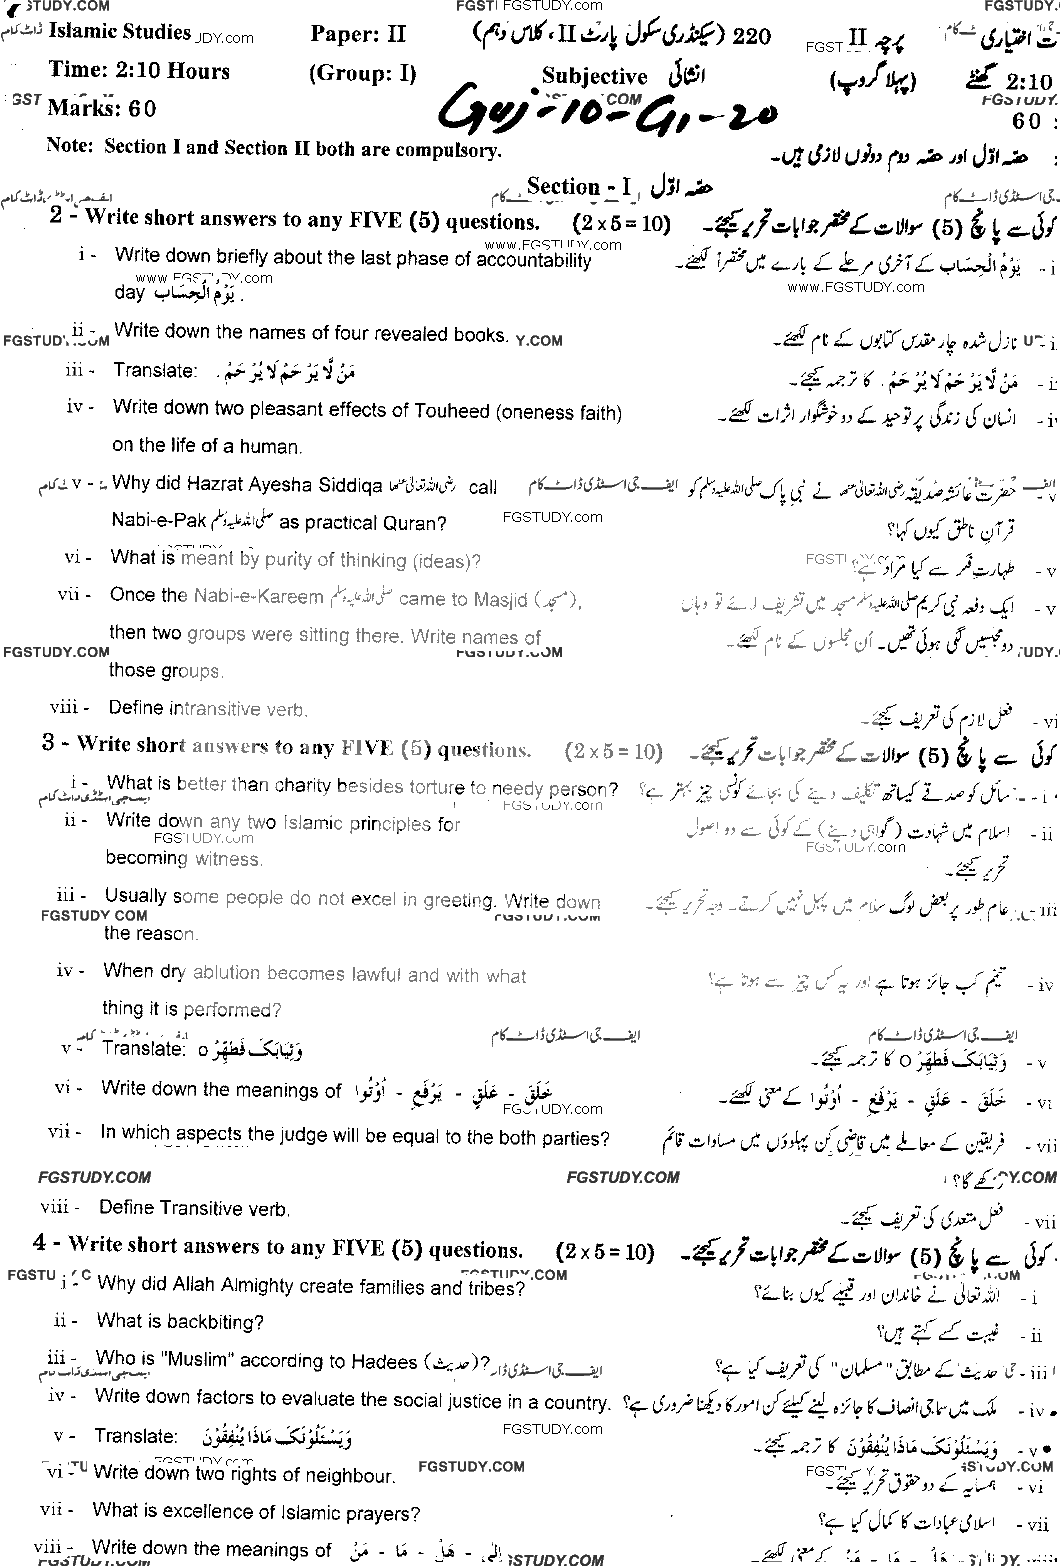 STUDY.COM FGSTUDY.com FGSTUDY.COM
Islamic Studies Paper: II 220 (سیکنڈری سکول پارٹ II، کلاس دہم) پرچہ II اختیاری
Time: 2:10 Hours (Group: I) Subjective انشائی (پہلا گروپ) 2:10 گھنٹے
Marks: 60 Guj-10-G1-20 60 :
Note: Section I and Section II both are compulsory. حصّہ اوّل اور حصّہ دوم دونوں لازمی ہیں۔
Section - I حصّہ اوّل
2 - Write short answers to any FIVE (5) questions. (2 x 5 = 10) کوئی سے پانچ (5) سوالات کے مختصر جوابات تحریر کیجئے۔
www.FGSTUDY.com
i - Write down briefly about the last phase of accountability یَوْمُ الْحِسَاب کے آخری مرحلے کے بارے میں مختصراً لکھئے۔ - i
www.FGSTUDY.com www.FGSTUDY.com
day یَوْمُ الْحِسَاب .
ii - Write down the names of four revealed books. نازل شدہ چار مقدس کتابوں کے نام لکھئے۔
iii - Translate: مَنْ لَّا یَرْحَمْ لَا یُرْحَمْ . مَنْ لَّا یَرْحَمْ لَا یُرْحَمْ . کا ترجمہ کیجئے۔
iv - Write down two pleasant effects of Touheed (oneness faith) انسان کی زندگی پر توحید کے دو خوشگوار اثرات لکھئے۔
on the life of a human.
v - Why did Hazrat Ayesha Siddiqa رضی اللہ تعالیٰ عنہا call حضرت عائشہ صدیقہ رضی اللہ تعالیٰ عنہا نے نبی پاک صلی اللہ علیہ وسلم کو
Nabi-e-Pak صلی اللہ علیہ وسلم as practical Quran? FGSTUDY.com قرآنِ ناطق کیوں کہا؟
vi - What is meant by purity of thinking (ideas)? طہارتِ فکر سے کیا مراد ہے؟
vii - Once the Nabi-e-Kareem صلی اللہ علیہ وسلم came to Masjid (مسجد), ایک دفعہ نبی کریم صلی اللہ علیہ وسلم مسجد میں تشریف لائے تو وہاں
then two groups were sitting there. Write names of دو مجلسیں لگی ہوئی تھیں۔ اُن مجلسوں کے نام لکھئے۔
FGSTUDY.COM FGSTUDY.COM
those groups.
viii - Define intransitive verb. فعل لازم کی تعریف کیجئے۔
3 - Write short answers to any FIVE (5) questions. (2 x 5 = 10) کوئی سے پانچ (5) سوالات کے مختصر جوابات تحریر کیجئے۔
i - What is better than charity besides torture to needy person? سائل کو صدقے کیساتھ تکلیف دینے کی بجائے کونسی چیز بہتر ہے؟ - i
FGSTUDY.com
ii - Write down any two Islamic principles for اسلام میں شہادت (گواہی دینے) کے کوئی سے دو اصول - ii
FGSTUDY.com FGSTUDY.com
becoming witness. تحریر کیجئے۔
iii - Usually some people do not excel in greeting. Write down عام طور پر بعض لوگ سلام میں پہل نہیں کرتے۔ وجہ تحریر کیجئے۔ - iii
FGSTUDY COM FGSTUDY.COM
the reason.
iv - When dry ablution becomes lawful and with what تیمّم کب جائز ہوتا ہے اور یہ کس چیز سے ہوتا ہے؟ - iv
thing it is performed?
ایف جی اسٹڈی ڈاٹ کام ایف جی اسٹڈی ڈاٹ کام
v - Translate: وَثِیَابَکَ فَطَھِّرْ o وَثِیَابَکَ فَطَھِّرْ o کا ترجمہ کیجئے۔ - v
vi - Write down the meanings of خَلَقَ - عَلَقٍ - یَرْفَعِ - اُوْتُوا خَلَقَ - عَلَقٍ - یَرْفَعِ - اُوْتُوا کے معنی لکھئے۔ - vi
FGSTUDY.com
vii - In which aspects the judge will be equal to the both parties? فریقین کے معاملے میں قاضی کن پہلوؤں میں مساوات قائم - vii
FGSTUDY.COM FGSTUDY.COM رکھے گا؟
viii - Define Transitive verb. فعل متعدی کی تعریف کیجئے۔
4 - Write short answers to any FIVE (5) questions. (2 x 5 = 10) کوئی سے پانچ (5) سوالات کے مختصر جوابات تحریر کیجئے۔
i - Why did Allah Almighty create families and tribes? اللہ تعالیٰ نے خاندان اور قبیلے کیوں بنائے؟ - i
ii - What is backbiting? غیبت کسے کہتے ہیں؟ - ii
iii - Who is "Muslim" according to Hadees (حدیث)? حدیث کے مطابق "مسلمان" کی تعریف کیا ہے؟ - iii
iv - Write down factors to evaluate the social justice in a country. ملک میں سماجی انصاف کا جائزہ لینے کیلئے کن امور کا دیکھنا ضروری ہے؟ - iv
FGSTUDY.com
v - Translate: وَیَسْئَلُوْنَکَ مَاذَا یُنْفِقُوْنَ وَیَسْئَلُوْنَکَ مَاذَا یُنْفِقُوْنَ کا ترجمہ کیجئے۔ - v
vi - Write down two rights of neighbour. FGSTUDY.COM ہمسایہ کے دو حقوق تحریر کیجئے۔ - vi
vii - What is excellence of Islamic prayers? اسلامی عبادات کا کمال کیا ہے؟ - vii
viii - Write down the meanings of اِلٰی - ھَلْ - مَا - مَنْ